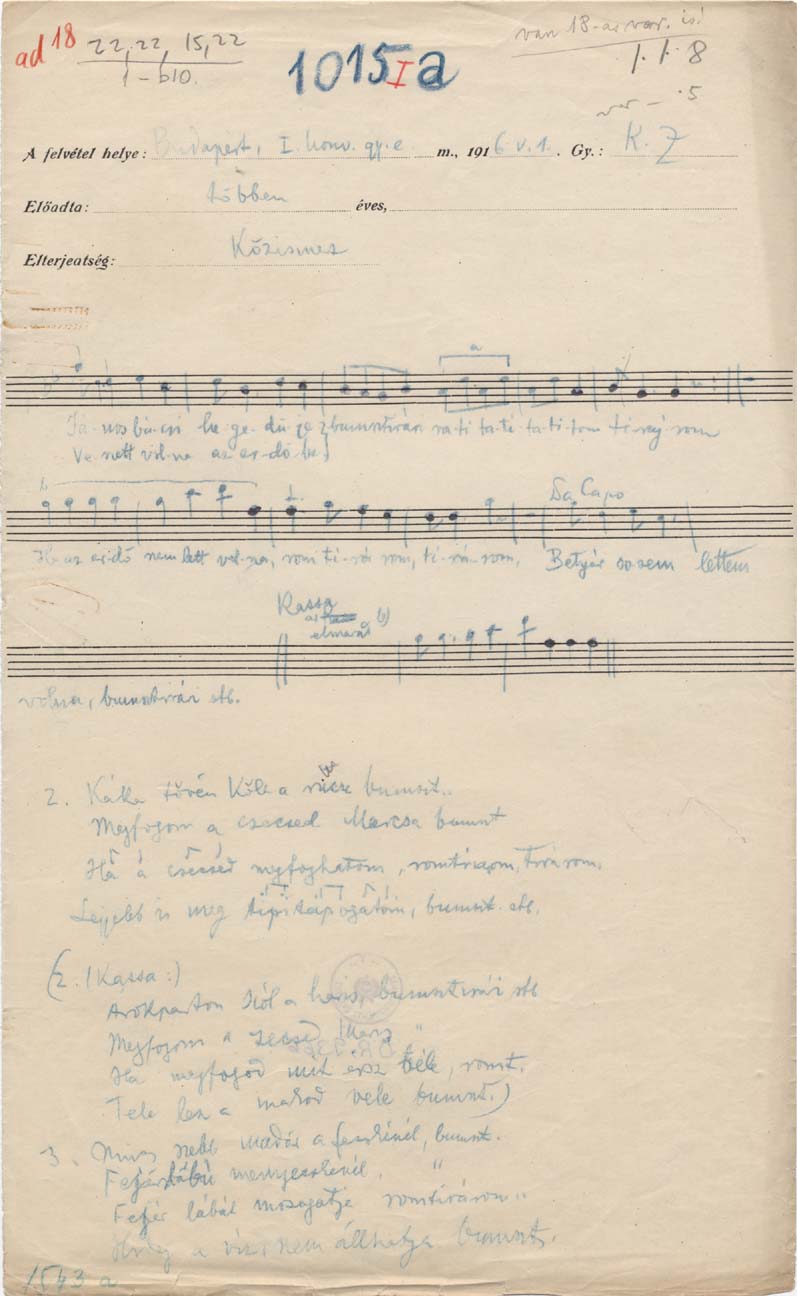 ad 18
22, 22, 15, 22
1 – b10.
1015 I a
van 18-as var. is!
1. 1. 8
var – . 5
A felvétel helye: Budapest, I. honv. gy. e. m., 1916. V. 1. Gy.: K. Z
Előadta: többen éves,
Elterjeatség: Közismer
a
Já-nos bá-csi he-ge-dű-je bumsztirári ra-ti ta-ti ta-ti-tom ti-ráj-rom
Ve-nett vol-na az er-dő-be
b Da Capo
Ha az er-dő nem lett vol-na, rom ti-rá rom, ti-rá-rom, Betyár sosem lettem
Kassa
elmarad b)
volna, bumsztirári stb.
2. Kátka tövén Költ a bumszt..
Megfogom a csecsed Marcsa bumszt
Ha a csecsed megfoghatom, romtirárom, tirárom,
Lejjebb is meg tipitápogatom, bumszt. stb.
(2. (Kassa:)
Árokparton szól a haris, bumsztirári stb
Megfogom a csecsed Maris "
Ha megfogod mit érsz véle, romt.
Tele lesz a markod vele bumszt.)
3. Nincs szebb madár a fecskénél, bumszt.
Fejérlábú menyecskénél, "
Fejér lábát mosogatja romtirárom "
Hideg a víz, nem állhatja bumszt.
1543 a